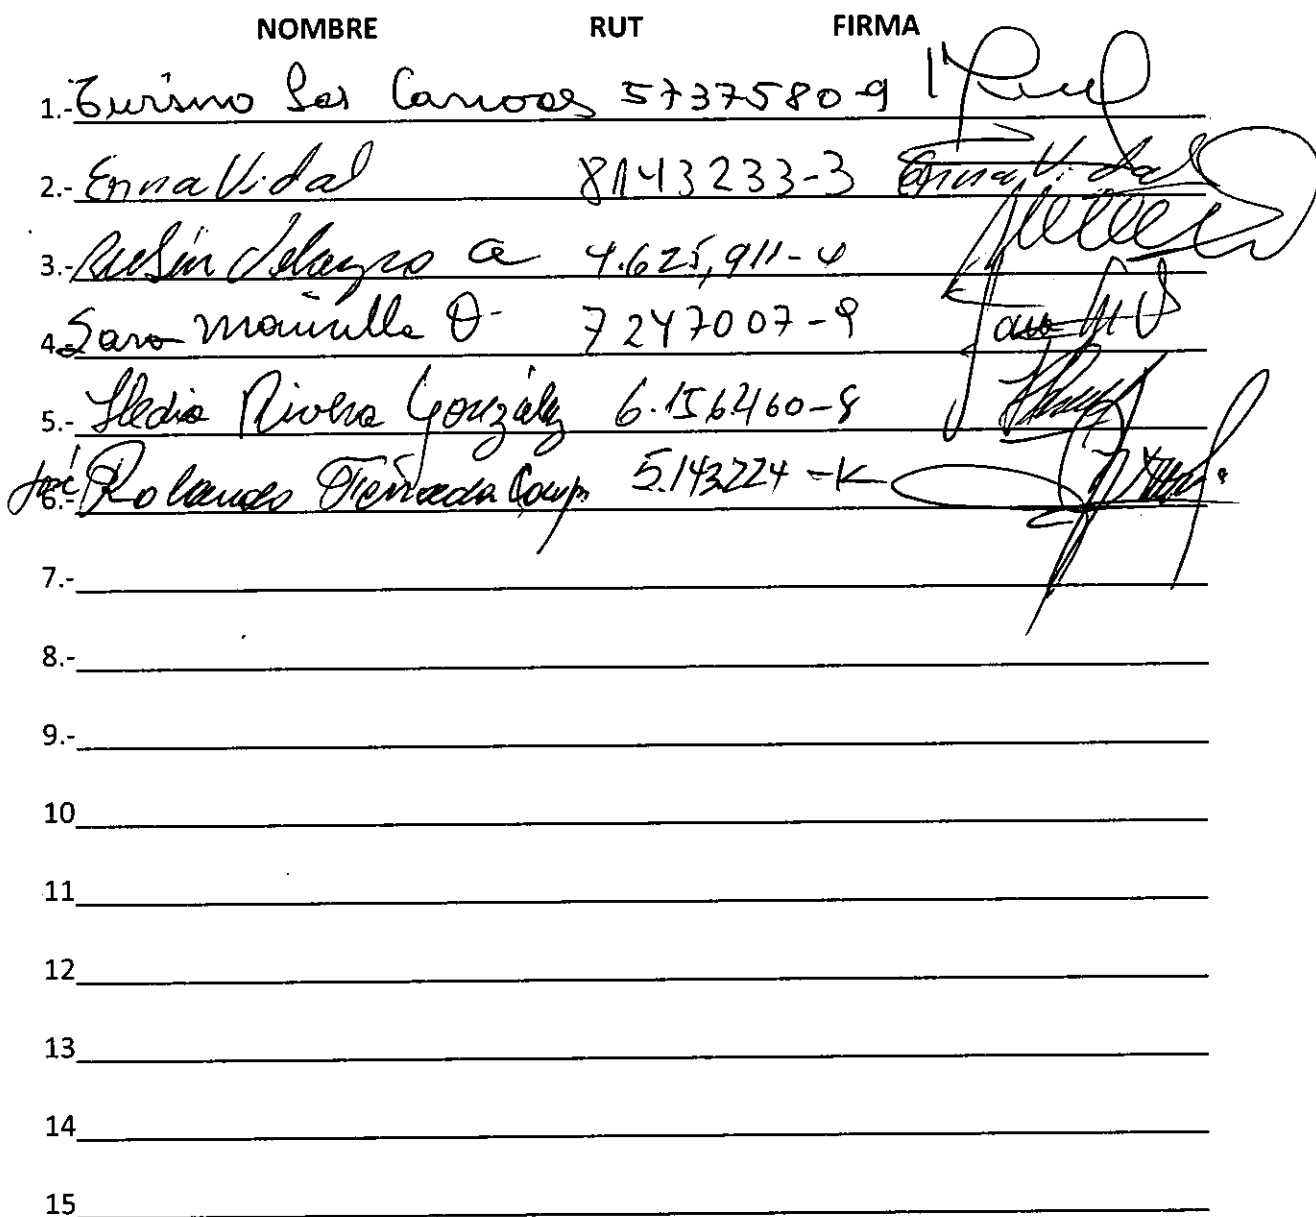 NOMBRE RUT FIRMA
1.- Turismo Los Canoas 5737580-9
2.- Erna Vidal 8143233-3 Erna Vidal
3.- Rubén a 4.625,911-4
4 Sara Mancilla O. 7247007-9
5.- Rivera González 6.156460-8
6.- José Rolando 5.143224-K
7.-
8.-
9.-
10
11
12
13
14
15